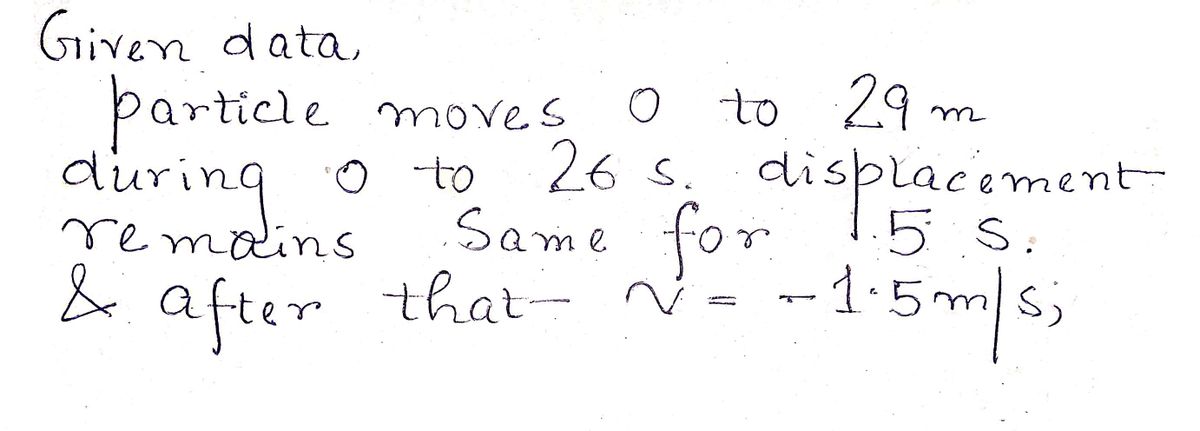 Given data,
particle moves 0 to 29 m
during 0 to 26 s. displacement
remains same for 1.5 s.
& after that v = -1.5 m/s;